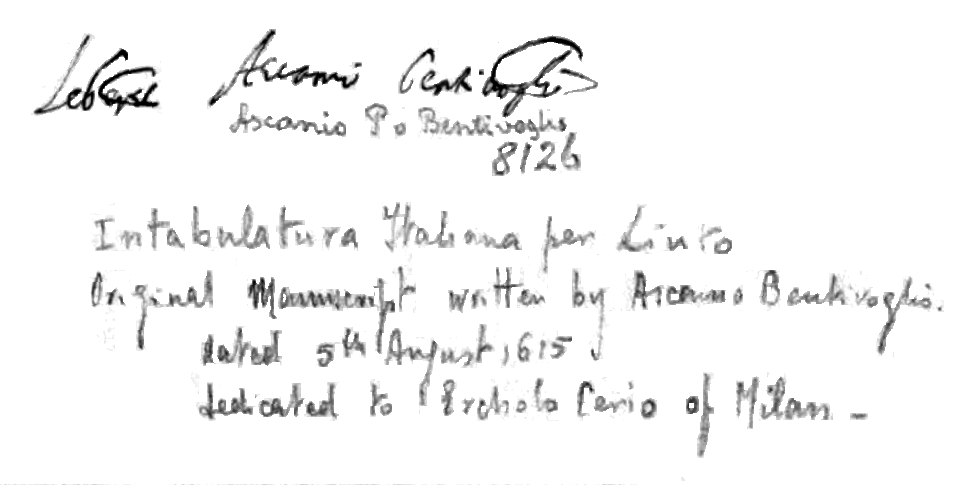 Ascanio Bentivoglio
Ascanio Po Bentivoglio
8126
Intabulatura Italiana per Liuto
Original Manuscript written by Ascanio Bentivoglio.
dated 5th August 1615
dedicated to Erchole Cerio of Milan -